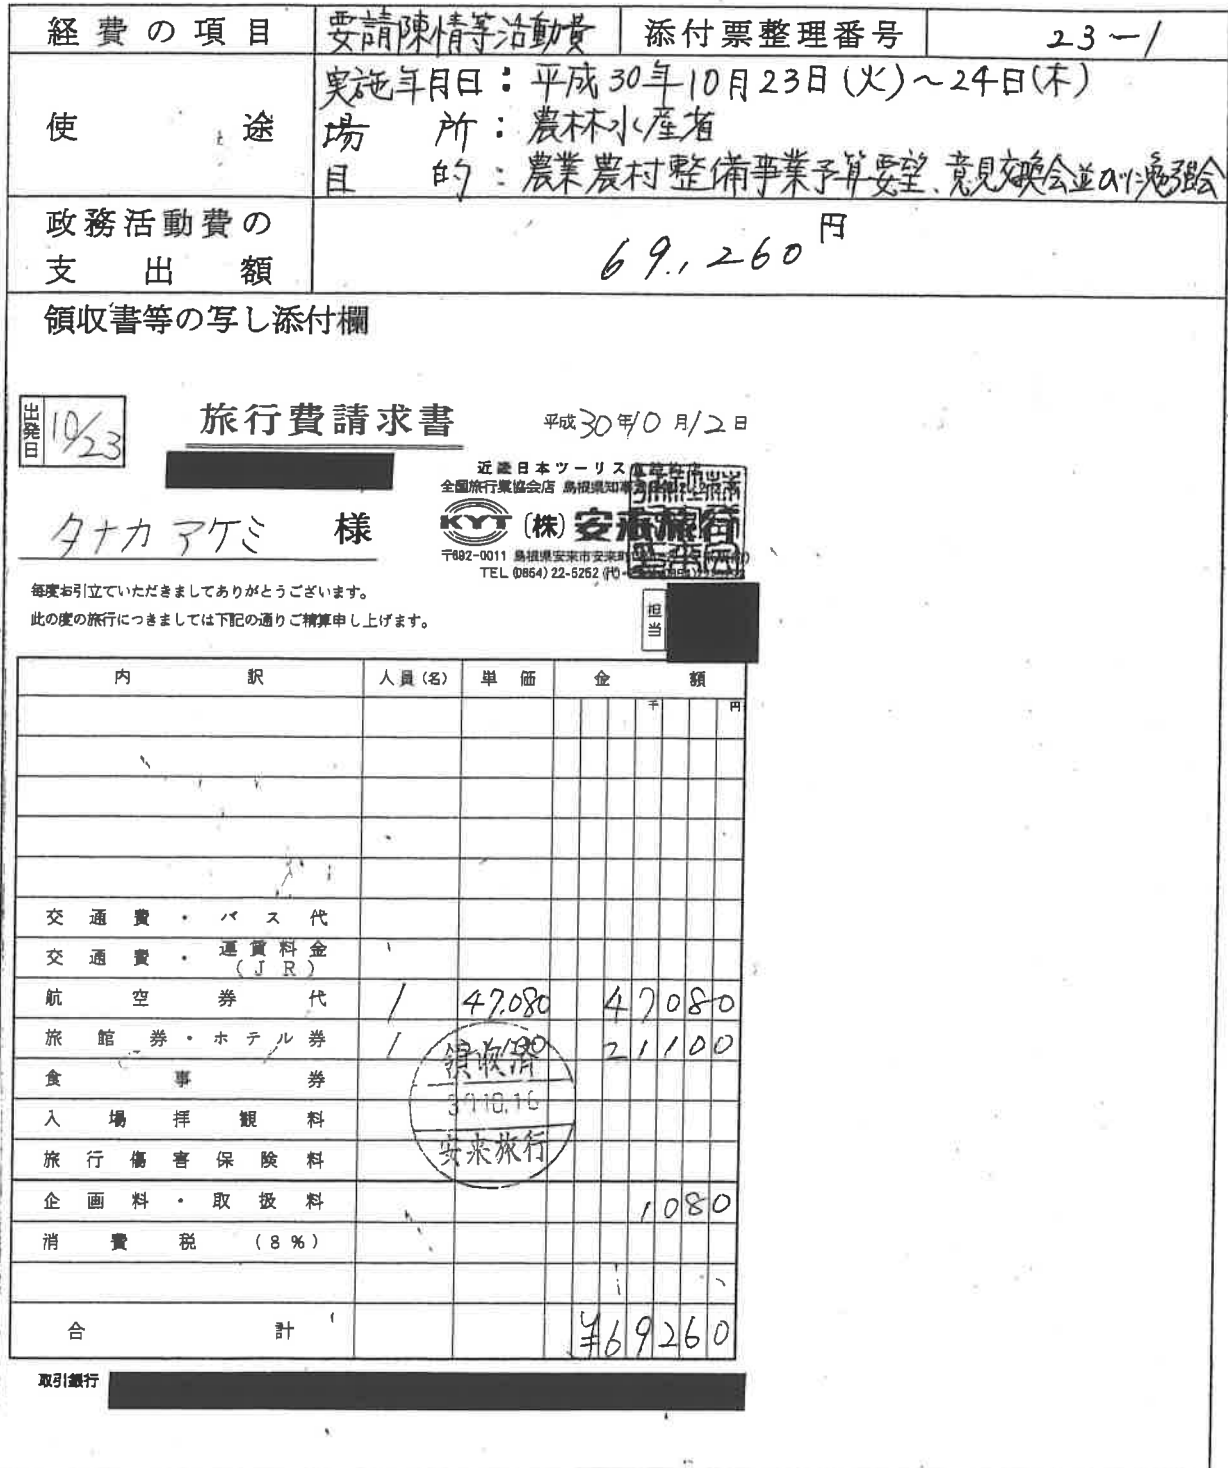 経費の項目 要請陳情等活動費 添付票整理番号 23-1
使途
実施年月日：平成30年10月23日(火)～24日(木)
場所：農林水産省
目的：農業農村整備事業予算要望、意見交換会並びに勉強会
政務活動費の支出額 69,260円
領収書等の写し添付欄
出発日 10/23
旅行費請求書
平成30年10月12日
近畿日本ツーリスト
全国旅行業協会店 島根県知事
タナカ アケミ 様
KYT (株)安来旅行
〒692-0011 島根県安来市安来町
TEL (0854) 22-5252 (代)
毎度お引立ていただきましてありがとうございます。
此の度の旅行につきましては下記の通りご精算申し上げます。
担当
内訳 人員(名) 単価 金額
千 円
交通費・バス代
交通費・運賃料金(JR)
航空券代 1 47,080 47080
旅館券・ホテル券 1 21100
食事券
入場拝観料
旅行傷害保険料
企画料・取扱料 1080
消費税(8%)
合計 ¥69260
領収済
30.10.16
安来旅行
取引銀行